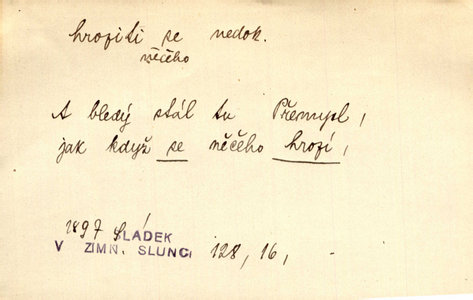 hroziti se nedok.
něčeho
A bledý stál tu Přemysl,
jak když se něčeho hrozí,
1897 SLÁDEK
V ZIMN. SLUNCI 128, 16,